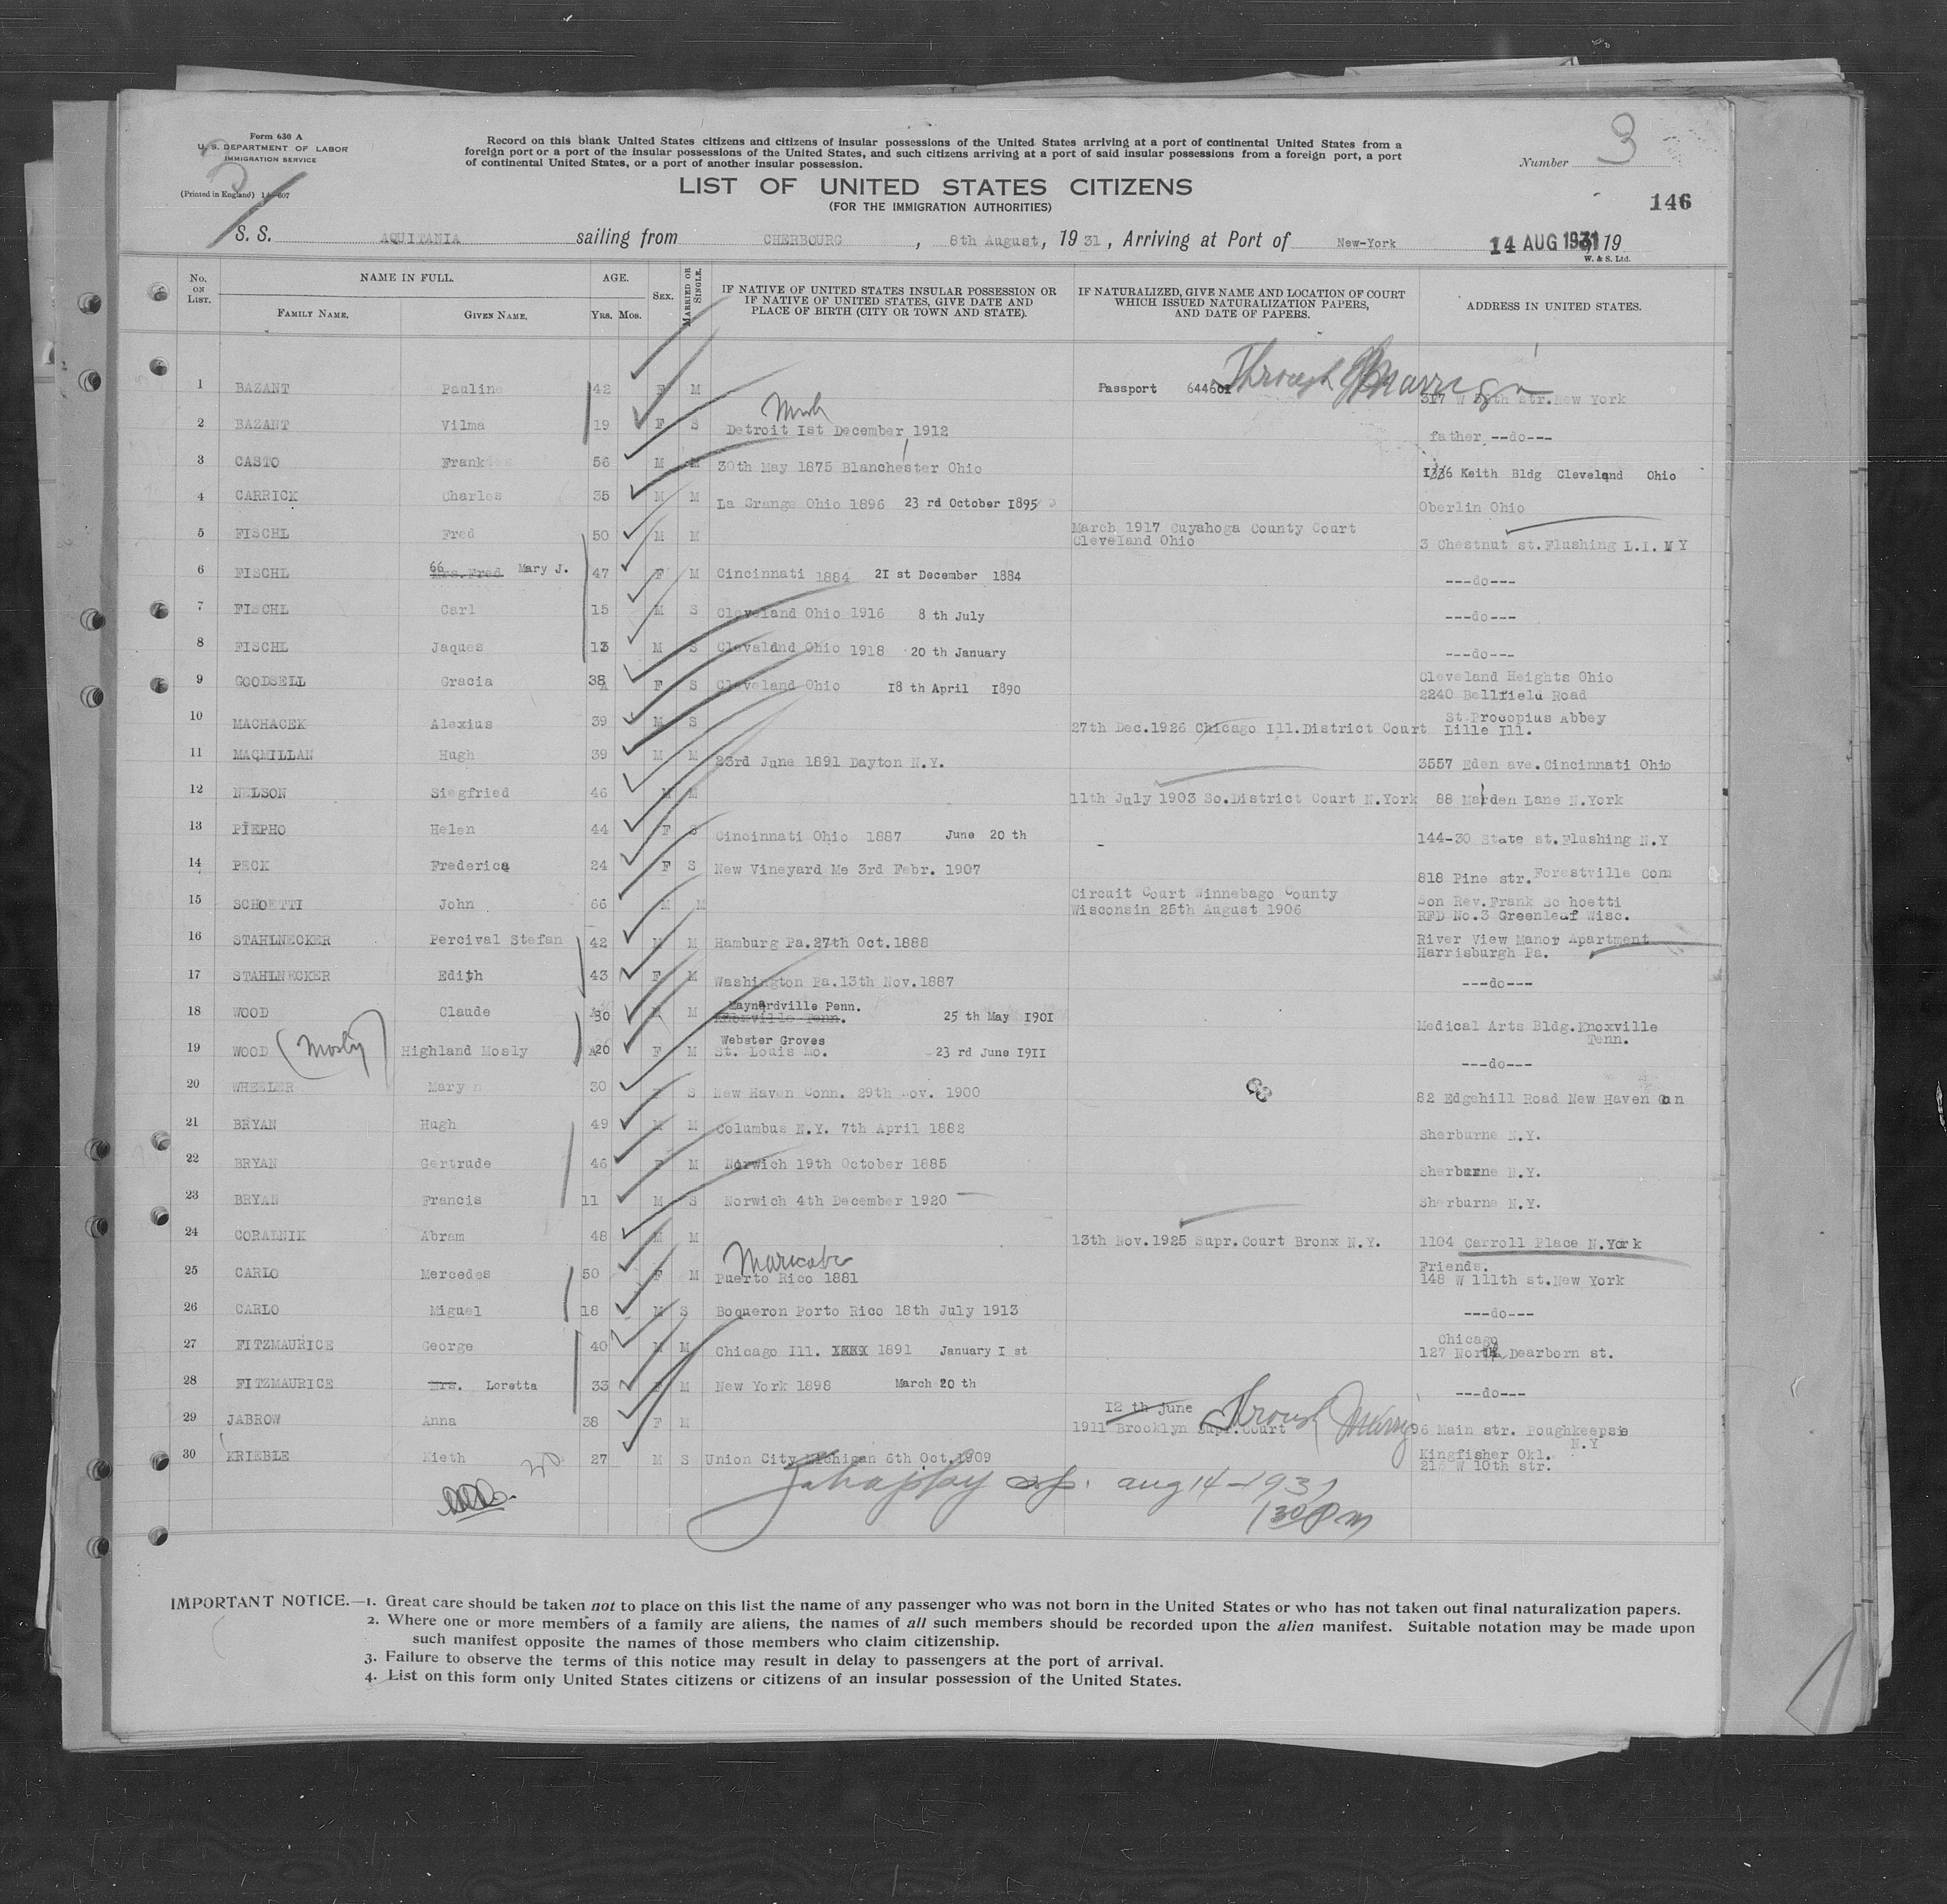 Form 630 A
U. S. DEPARTMENT OF LABOR
IMMIGRATION SERVICE
(Printed in England)
Record on this blank United States citizens and citizens of insular possessions of the United States arriving at a port of continental United States from a
foreign port or a port of the insular possessions of the United States, and such citizens arriving at a port of said insular possessions from a foreign port, a port
of continental United States, or a port of another insular possession.
Number 3
LIST OF UNITED STATES CITIZENS
(FOR THE IMMIGRATION AUTHORITIES)
146
S. S. AQUITANIA sailing from CHERBOURG, 8th August, 1931, Arriving at Port of New-York 14 AUG 1931 19
W. & S. Ltd.
No. ON LIST. NAME IN FULL. FAMILY NAME. GIVEN NAME. AGE. YRS. MOS. SEX. MARRIED OR SINGLE. IF NATIVE OF UNITED STATES INSULAR POSSESSION OR IF NATIVE OF UNITED STATES, GIVE DATE AND PLACE OF BIRTH (CITY OR TOWN AND STATE). IF NATURALIZED, GIVE NAME AND LOCATION OF COURT WHICH ISSUED NATURALIZATION PAPERS, AND DATE OF PAPERS. ADDRESS IN UNITED STATES.
1 BAZANT Pauline 42 F M Passport Through Marriage 317 W str. New York
2 BAZANT Vilma 19 F S Mich Detroit 1st December 1912 father --do---
3 CASTO Frank 56 M M 30th May 1875 Blanchester Ohio 1336 Keith Bldg Cleveland Ohio
4 CARRICK Charles 35 M M La Grange Ohio 1896 23 rd October 1895 Oberlin Ohio
5 FISCHL Fred 50 M M March 1917 Cuyahoga County Court Cleveland Ohio 3 Chestnut st. Flushing L.I. N Y
6 FISCHL 66 Mrs. Fred Mary J. 47 F M Cincinnati 1884 21 st December 1884 ---do---
7 FISCHL Carl 15 M S Cleveland Ohio 1916 8 th July ---do---
8 FISCHL Jaques 13 M S Clevalând Ohio 1918 20 th January ---do---
9 GOODSELL Gracia 38 F S Cleveland Ohio 18 th April 1890 Cleveland Heights Ohio 2240 Bellfield Road
10 MACHACEK Alexius 39 M S 27th Dec.1926 Chicago Ill.District Court St.Procopius Abbey Lille Ill.
11 MACMILLAN Hugh 39 M M 23rd June 1891 Dayton N.Y. 3557 Eden ave.Cincinnati Ohio
12 NELSON Siegfried 46 M M 11th July 1903 So.District Court N.York 88 Maiden Lane N.York
13 PIEPHO Helen 44 F S Cincinnati Ohio 1887 June 20 th 144-30 State st.Flushing N.Y
14 PECK Frederica 24 F S New Vineyard Me 3rd Febr. 1907 818 Pine str. Forestville Conn
15 SCHOETTI John 66 M M Circuit Court Winnebago County Wisconsin 25th August 1906 Son Rev.Frank Schoetti RFD No.3 Greenleaf Wisc.
16 STAHLNECKER Percival Stefan 42 M M Hamburg Pa.27th Oct.1888 River View Manor Apartment Harrisburgh Pa.
17 STAHLNECKER Edith 43 F M Washington Pa.13th Nov.1887 ---do---
18 WOOD Claude 30 M M Maynardville Penn. Knoxville Tenn. 25 th May 1901 Medical Arts Bldg.Knoxville Tenn.
19 WOOD (Mosby) Highland Mosly 20 F M Webster Groves St. Louis Mo. 23 rd June 1911 ---do---
20 WHEELER Mary 30 S New Haven Conn. 29th Nov. 1900 82 Edgehill Road New Haven Con
21 BRYAN Hugh 49 M M Columbus N.Y. 7th April 1882 Sherburne N.Y.
22 BRYAN Gertrude 46 F M Norwich 19th October 1885 Sherburne N.Y.
23 BRYAN Francis 11 M S Norwich 4th December 1920 Sherburne N.Y.
24 CORALNIK Abram 48 M M 13th Nov.1925 Supr.Court Bronx N.Y. 1104 Carroll Place N.York
25 CARLO Mercedes 50 F M Puerto Rico 1881 Friends. 148 W 111th st.New York
26 CARLO Miguel 18 M S Boqueron Porto Rico 18th July 1913 ---do---
27 FITZMAURICE George 40 M M Chicago Ill. 1891 January 1 st Chicago 127 North Dearborn st.
28 FITZMAURICE Mrs. Loretta 33 F M New York 1898 March 20 th ---do---
29 JABROW Anna 38 F M 12 th June 1911 Brooklyn Supr.Court Through 96 Main str. Poughkeepsie N.Y
30 KRIEBLE Kieth 27 M S Union City Michigan 6th Oct.1909 Kingfisher Okl. 215 W 10th str.
30
aug 14-1931
130 Pm
IMPORTANT NOTICE.—1. Great care should be taken not to place on this list the name of any passenger who was not born in the United States or who has not taken out final naturalization papers.
2. Where one or more members of a family are aliens, the names of all such members should be recorded upon the alien manifest. Suitable notation may be made upon
such manifest opposite the names of those members who claim citizenship.
3. Failure to observe the terms of this notice may result in delay to passengers at the port of arrival.
4. List on this form only United States citizens or citizens of an insular possession of the United States.